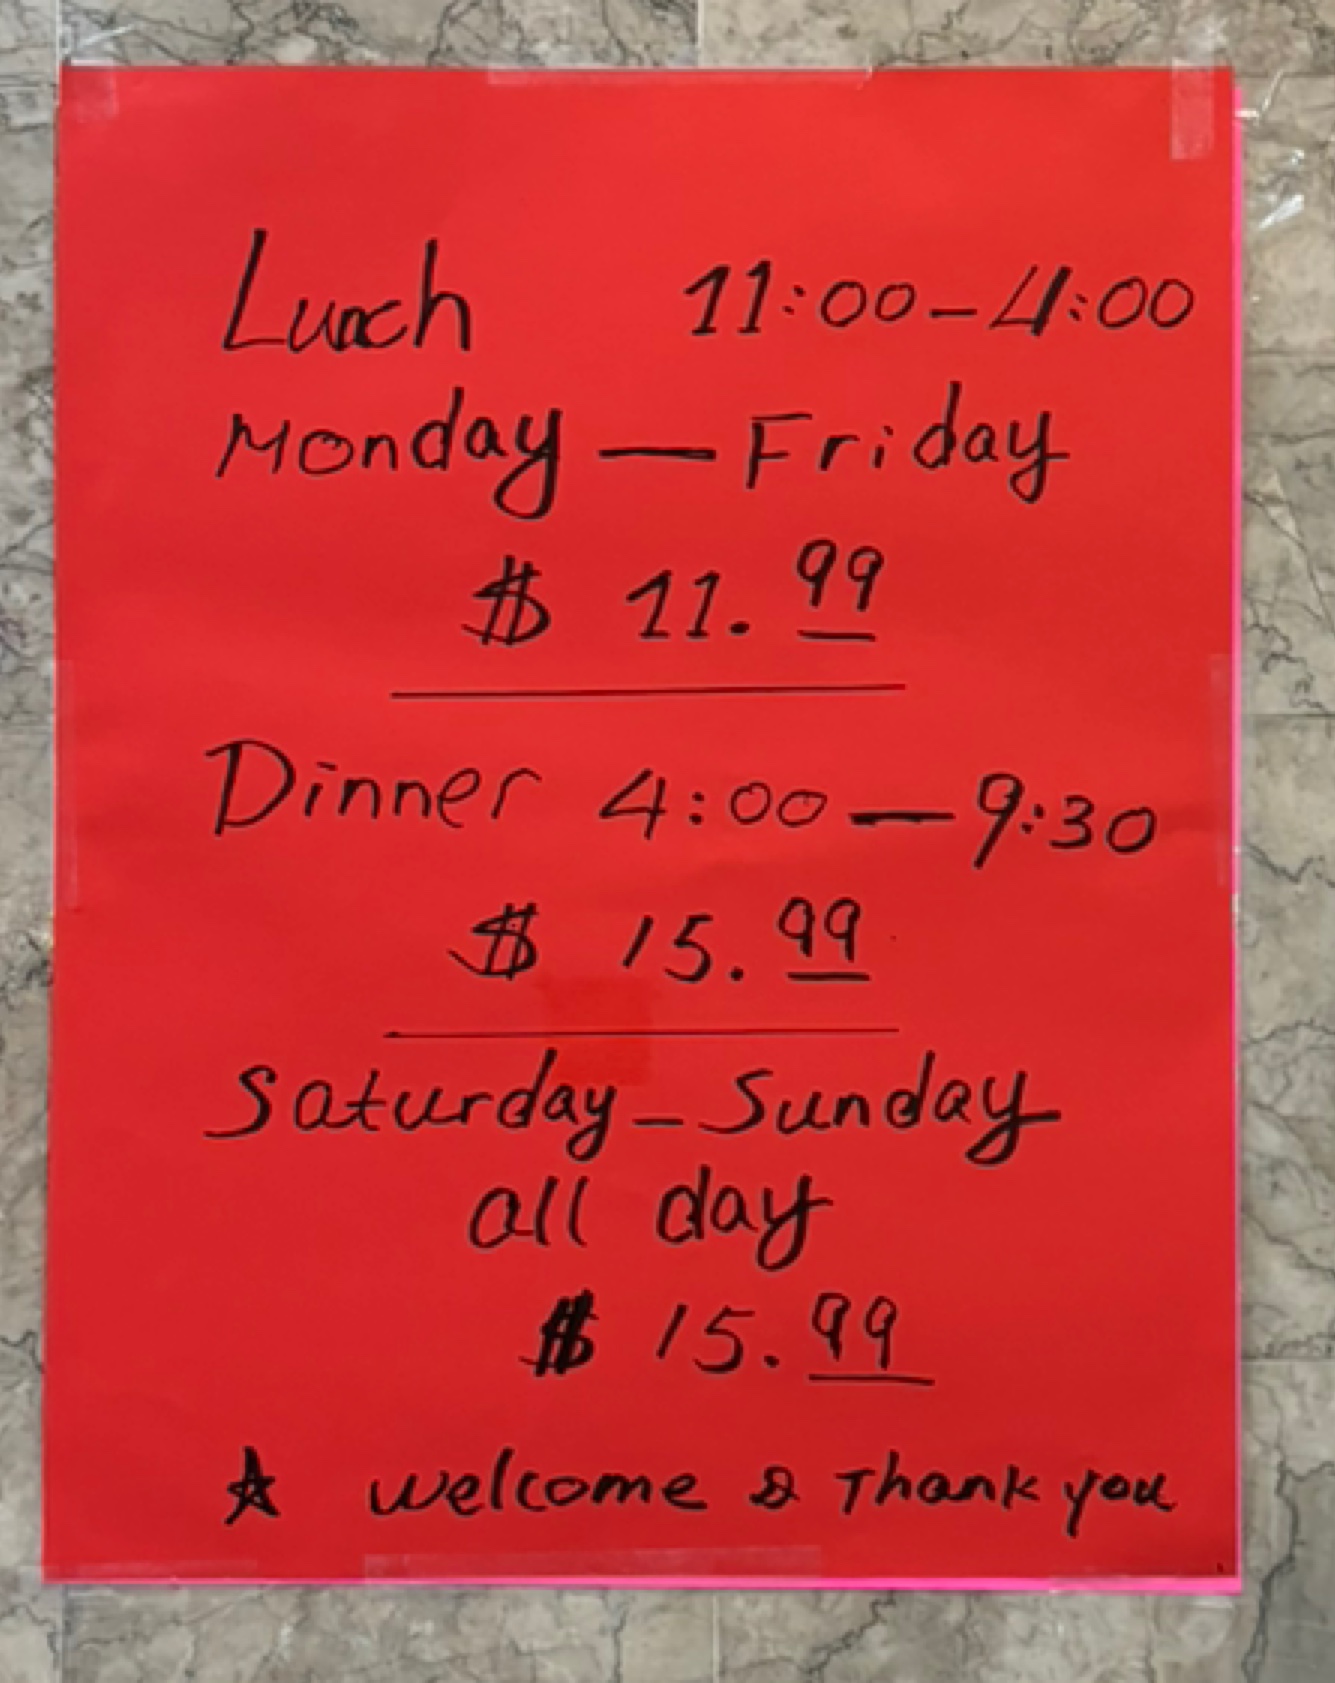 Lunch 11:00-4:00
Monday — Friday
$ 11.99
Dinner 4:00 — 9:30
$ 15.99
Saturday - Sunday
all day
$ 15.99
☆ welcome & Thank you